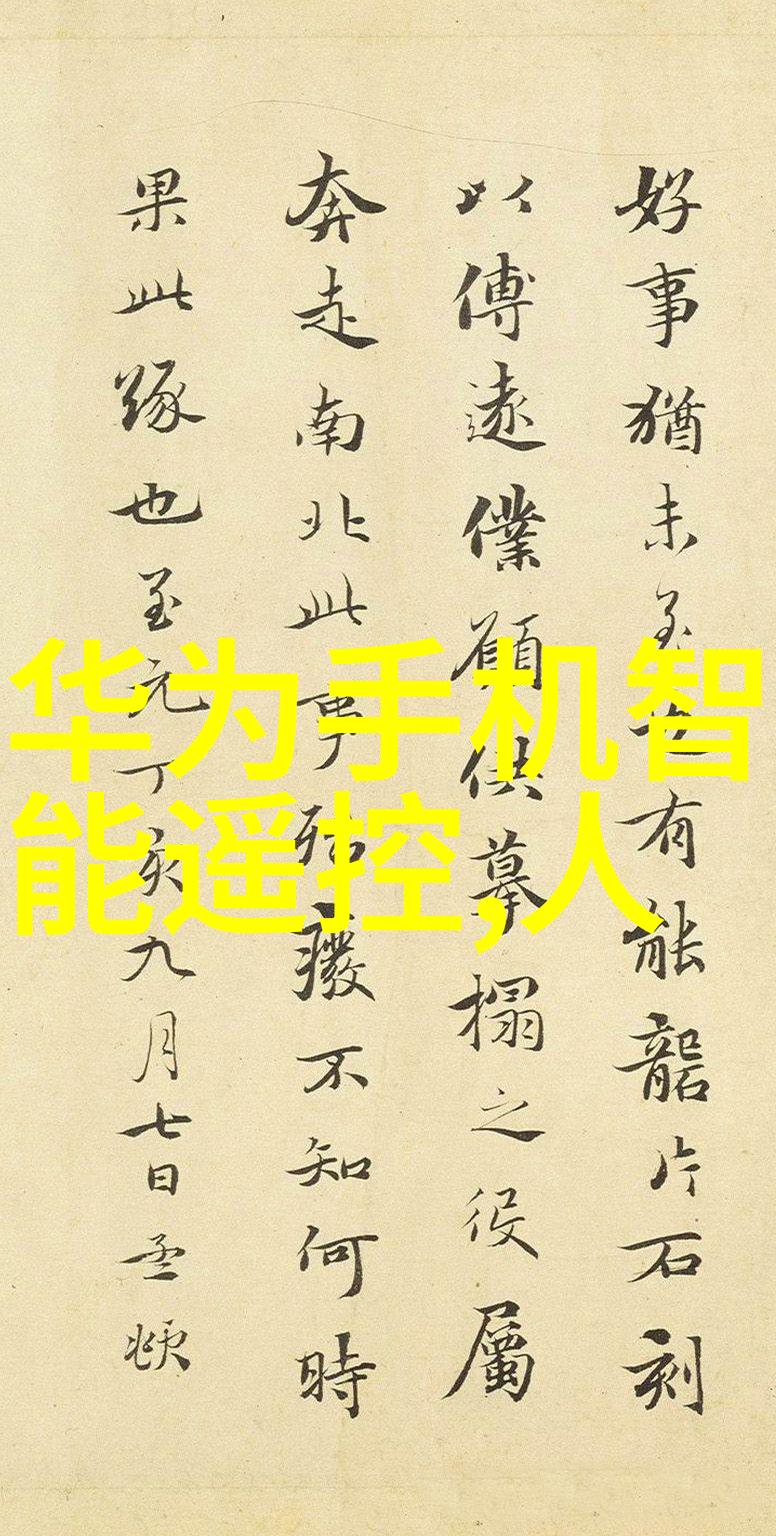 好事猶未至也有能礱片石刻
以傳遠僕願供摹搨之役屬
奔走南北此事殆癈不知何時
果此緣也至元丁亥九月七日孟頫
华为手机智
能遥控,人